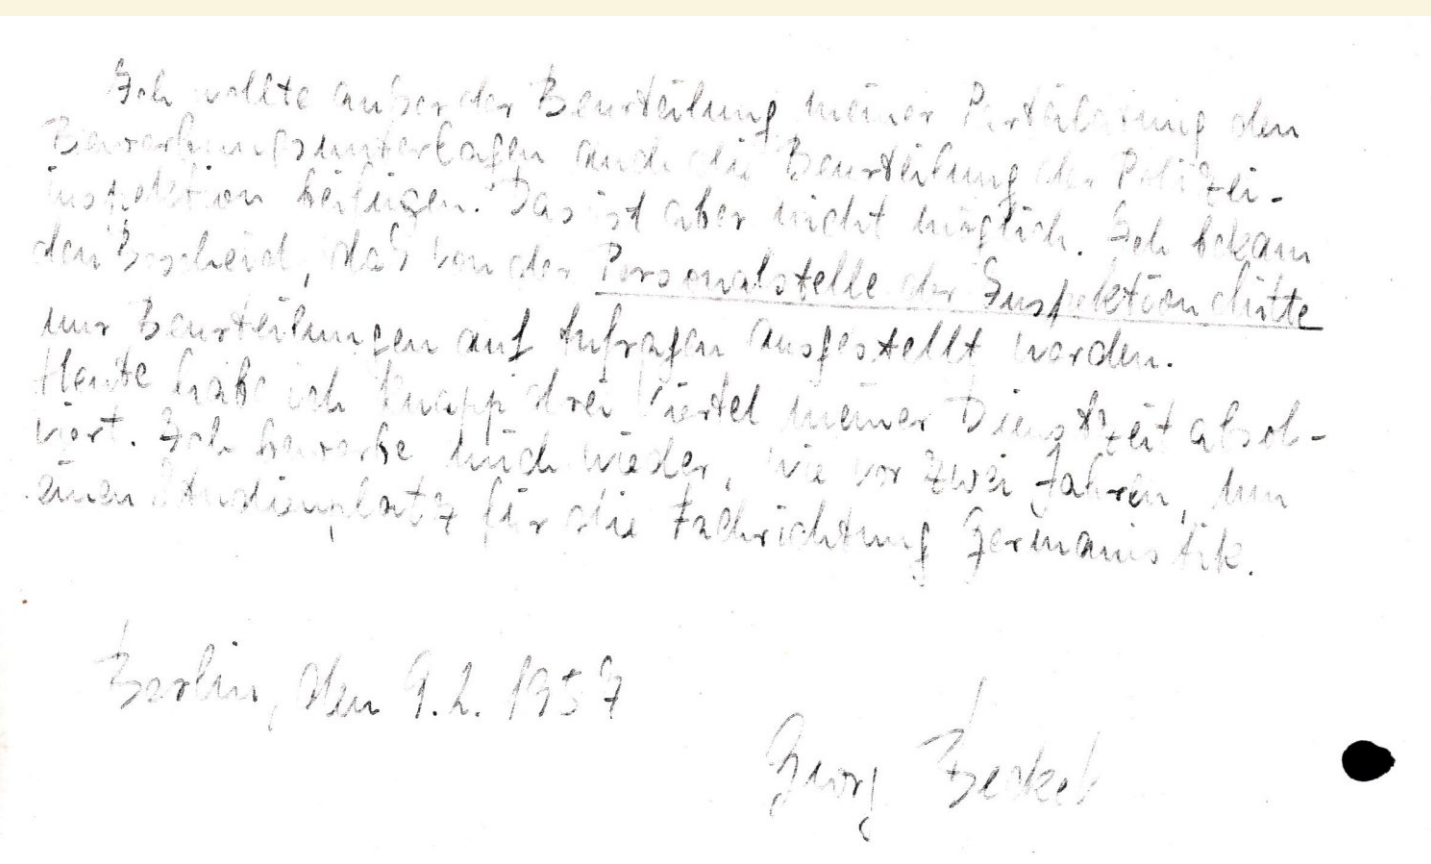 Ich wollte außer der Beurteilung meiner Parteileitung den
Bewerbungsunterlagen auch die Beurteilung der Polizei-
inspektion beifügen. Das ist aber nicht möglich. Ich bekam
den Bescheid, daß von der Personalstelle der Inspektion Mitte
nur Beurteilungen auf Anfragen ausgestellt werden.
Heute habe ich knapp drei Viertel meiner Dienstzeit absol-
viert. Ich bewerbe mich wieder, wie vor zwei Jahren, um
einen Studienplatz für die Fachrichtung Germanistik.
Berlin, den 9.2.1957
Georg